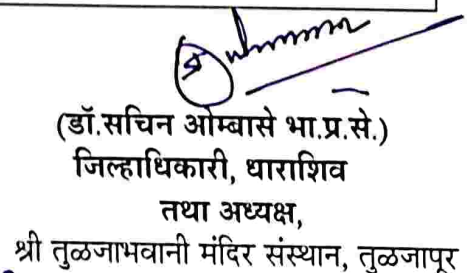 (डॉ.सचिन ओम्बासे भा.प्र.से.)
जिल्हाधिकारी, धाराशिव
तथा अध्यक्ष,
श्री तुळजाभवानी मंदिर संस्थान, तुळजापूर